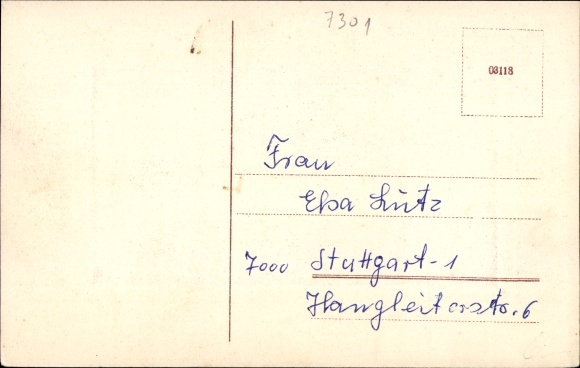 7301
03118
Frau
Elsa Lutz
7000 Stuttgart-1
Hangleiterstr. 6